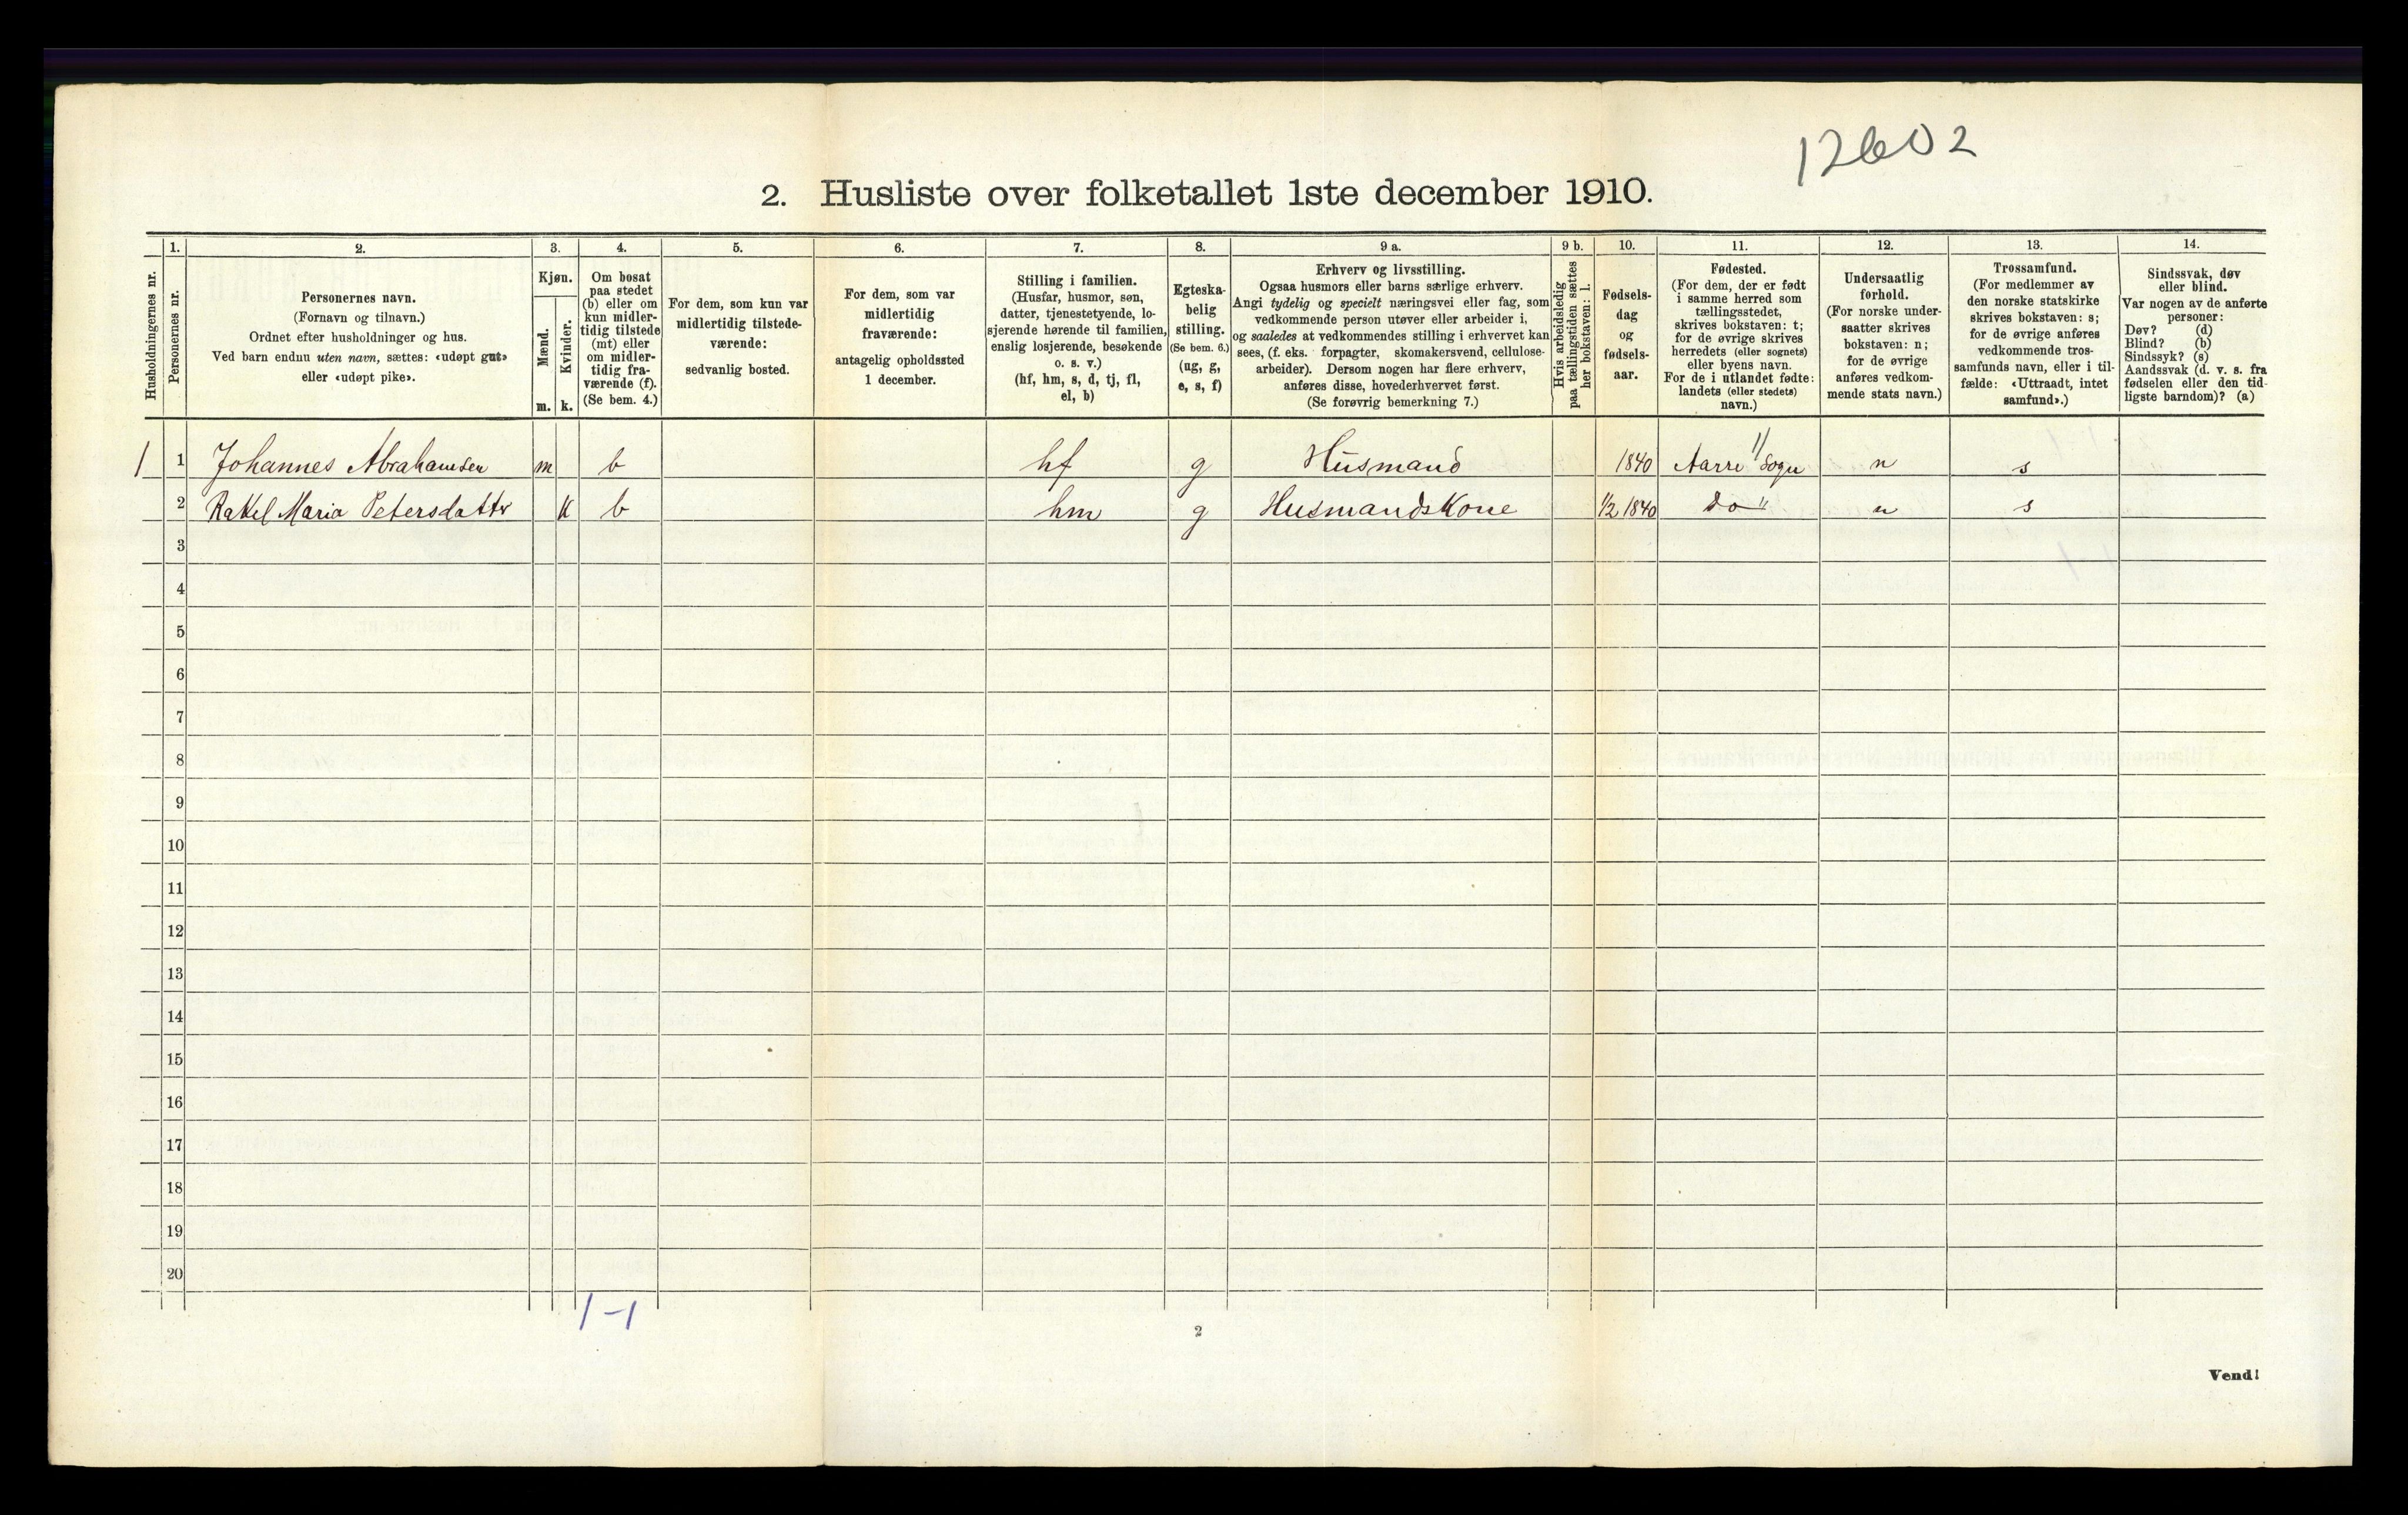 12602
2. Husliste over folketallet 1ste december 1910.
Husholdningernes nr.
1.
Personernes nr.
2.
Personernes navn.
(Fornavn og tilnavn.)
Ordnet efter husholdninger og hus.
Ved barn endnu uten navn, sættes: «udøpt gut»
eller «udøpt pike».
3.
Kjøn.
Mænd.
Kvinder.
m.
k.
4.
Om bosat
paa stedet
(b) eller om
kun midler-
tidig tilstede
(mt) eller
om midler-
tidig fra-
værende (f).
(Se bem. 4.)
5.
For dem, som kun var
midlertidig tilstede-
værende:
sedvanlig bosted.
6.
For dem, som var
midlertidig
fraværende:
antagelig opholdssted
1 december.
7.
Stilling i familien.
(Husfar, husmor, søn,
datter, tjenestetyende, lo-
sjerende hørende til familien,
enslig losjerende, besøkende
o. s. v.)
(hf, hm, s, d, tj, fl,
el, b)
8.
Egteska-
belig
stilling.
(Se bem. 6.)
(ug, g,
e, s, f)
9 a.
Erhverv og livsstilling.
Ogsaa husmors eller barns særlige erhverv.
Angi tydelig og specielt næringsvei eller fag, som
vedkommende person utøver eller arbeider i,
og saaledes at vedkommendes stilling i erhvervet kan
sees, (f. eks. forpagter, skomakersvend, cellulose-
arbeider). Dersom nogen har flere erhverv,
anføres disse, hovederhvervet først.
(Se forøvrig bemerkning 7.)
9 b.
Hvis arbeidsledig
paa tællingstiden sættes
her bokstaven: l.
10.
Fødsels-
dag
og
fødsels-
aar.
11.
Fødested.
(For dem, der er født
i samme herred som
tællingsstedet,
skrives bokstaven: t;
for de øvrige skrives
herredets (eller sognets)
eller byens navn.
For de i utlandet fødte:
landets (eller stedets)
navn.)
12.
Undersaatlig
forhold.
(For norske under-
saatter skrives
bokstaven: n;
for de øvrige
anføres vedkom-
mende stats navn.)
13.
Trossamfund.
(For medlemmer av
den norske statskirke
skrives bokstaven: s;
for de øvrige anføres
vedkommende tros-
samfunds navn, eller i til-
fælde: «Uttraadt, intet
samfund».)
14.
Sindssvak, døv
eller blind.
Var nogen av de anførte
personer:
Døv? (d)
Blind? (b)
Sindssyk? (s)
Aandssvak (d. v. s. fra
fødselen eller den tid-
ligste barndom)? (a)
1 1 Johannes Abrahamsen m b hf g Husmand 1840 Aarre Sogn n s
2 Rakel Maria Petersdatter k b hm g Husmandskone 1/2 1840 Do " n s
3
4
5
6
7
8
9
10
11
12
13
14
15
16
17
18
19
20
1-1
2
Vend!